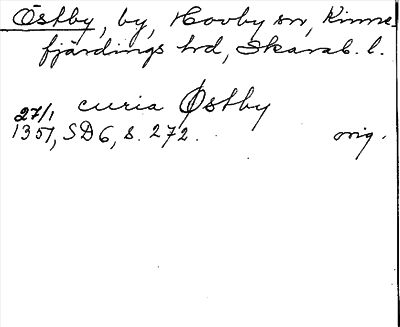 Östby, by, Hovby sn, Kinne-
fjärdings hd, Skarab. l.
27/1 curia Østby
1351, SD6, s. 272. orig.